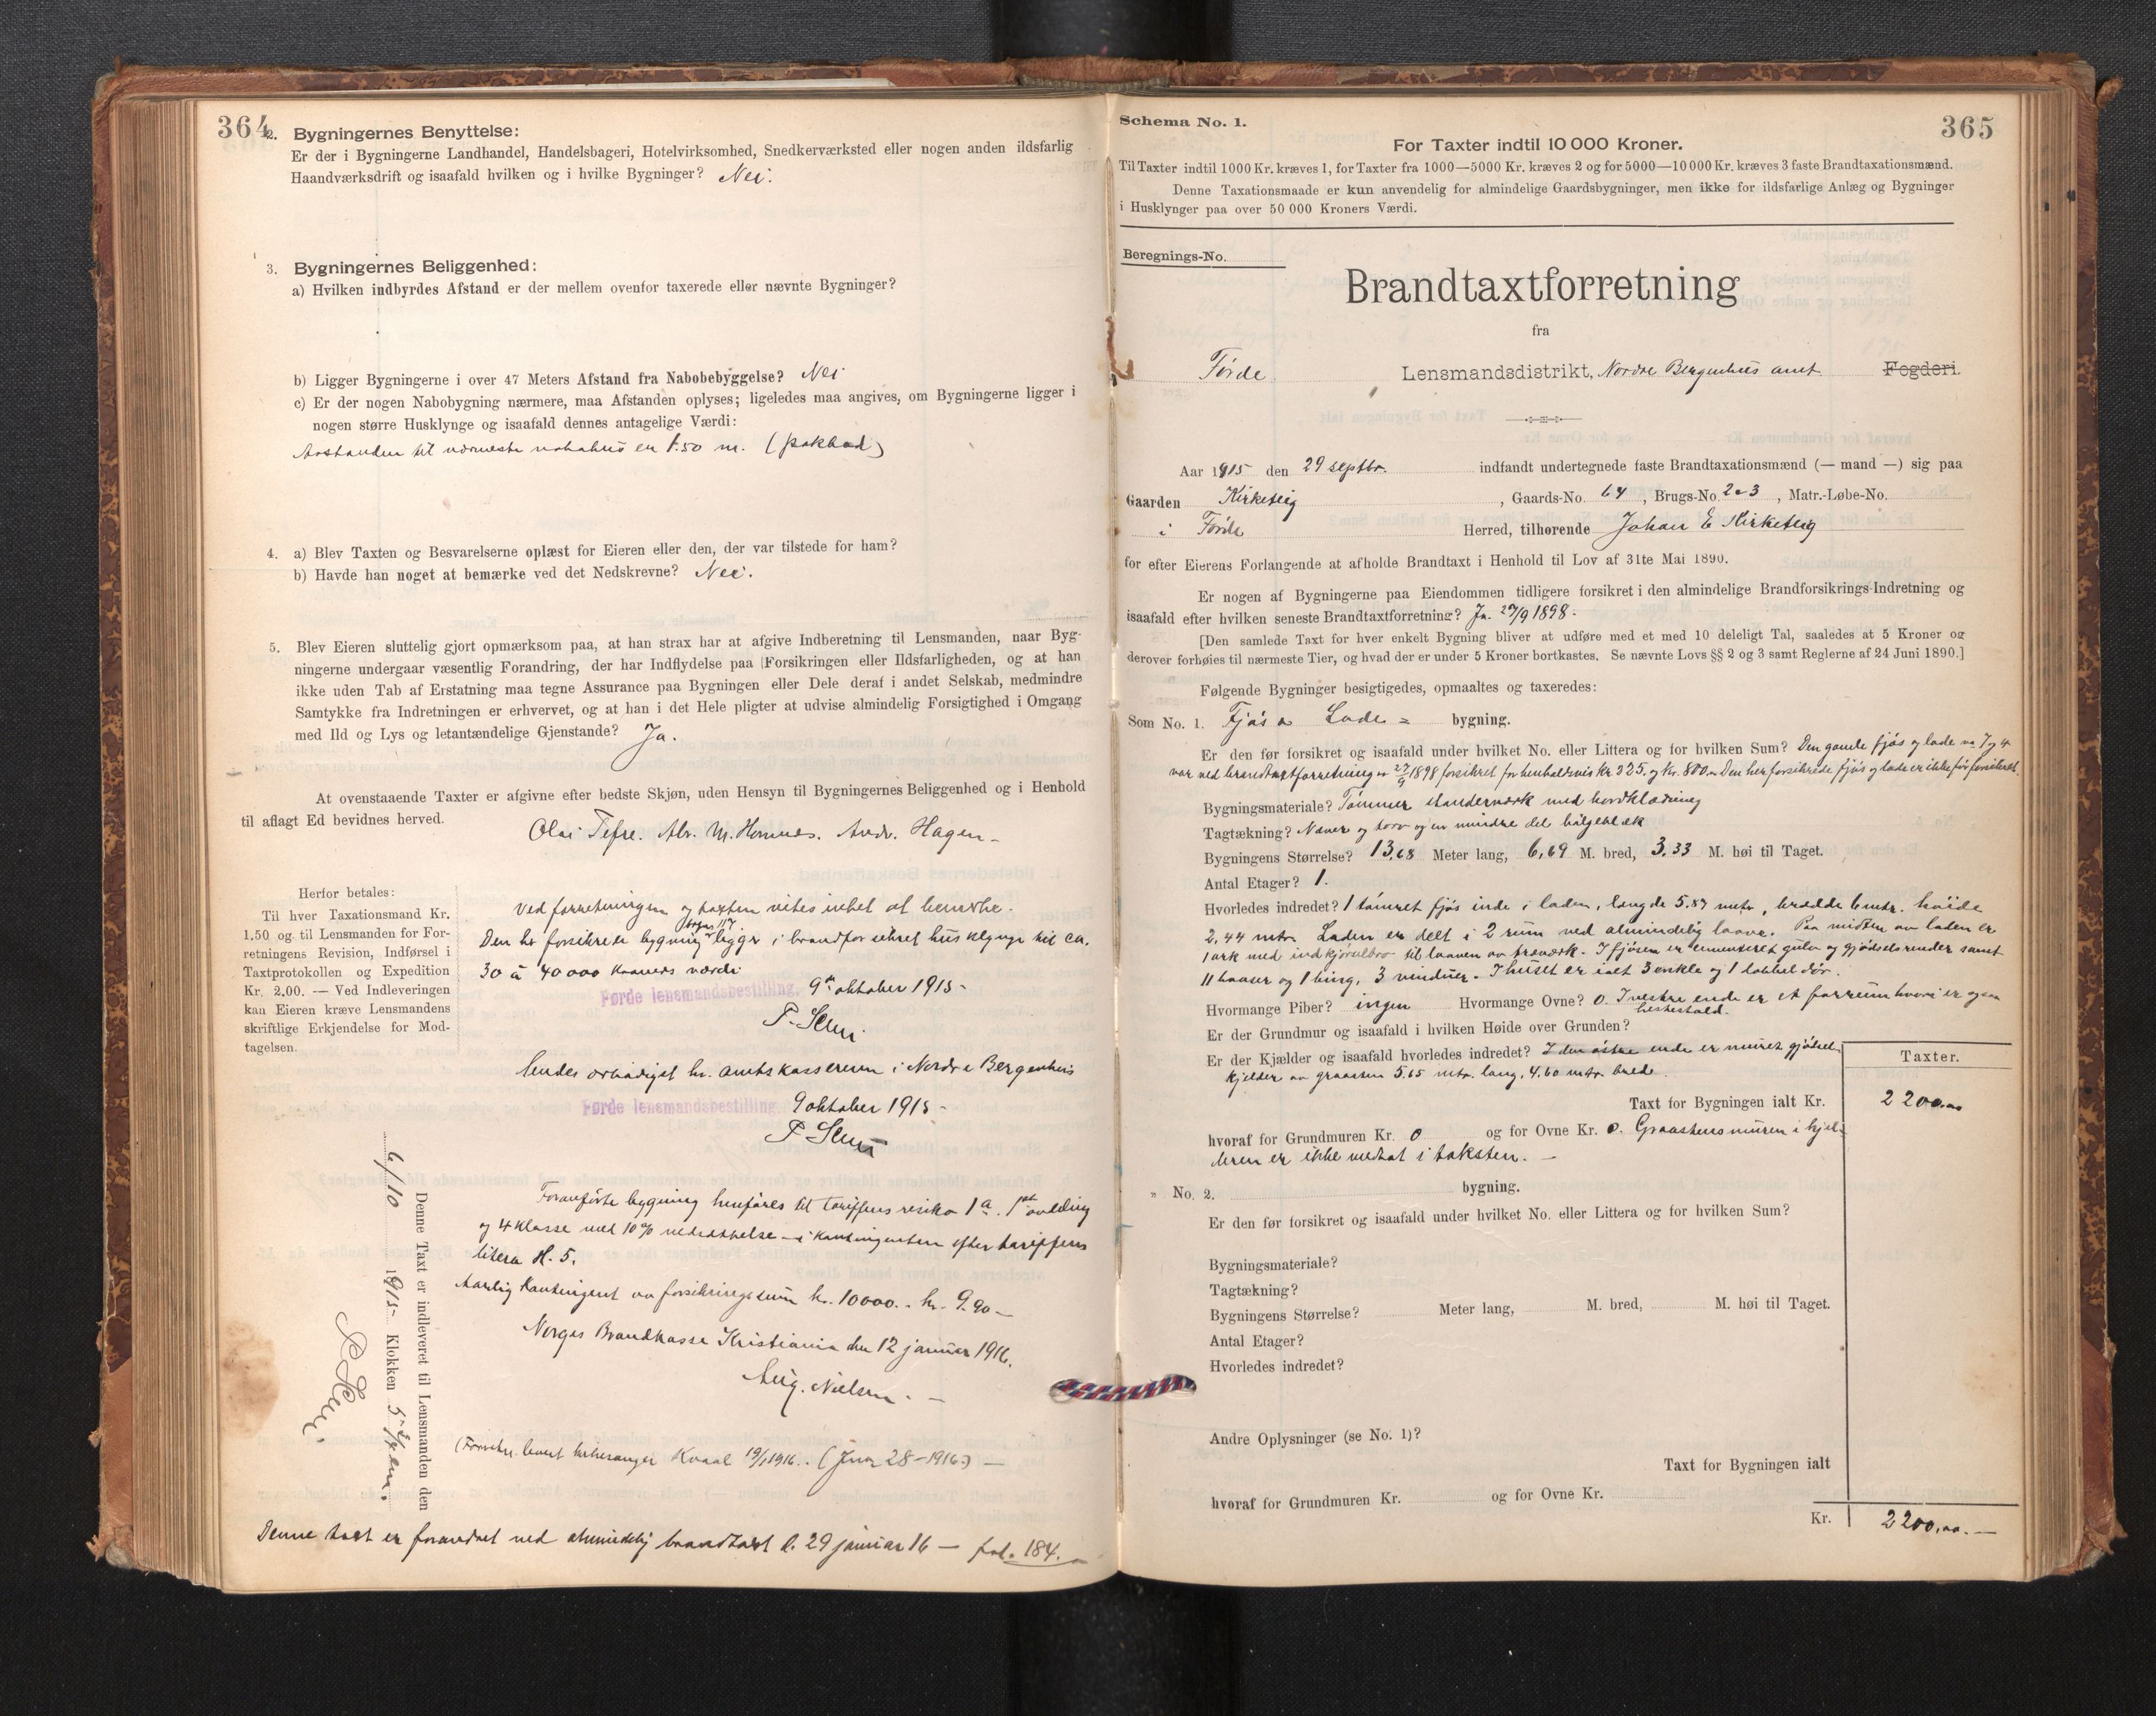 364
2. Bygningernes Benyttelse:
Er der i Bygningerne Landhandel, Handelsbageri, Hotelvirksomhed, Snedkerværksted eller nogen anden ildsfarlig
Haandværksdrift og isaafald hvilken og i hvilke Bygninger? Nei.
3. Bygningernes Beliggenhed:
a) Hvilken indbyrdes Afstand er der mellem ovenfor taxerede eller nævnte Bygninger?
b) Ligger Bygningerne i over 47 Meters Afstand fra Nabobebyggelse? Nei
c) Er der nogen Nabobygning nærmere, maa Afstanden oplyses; ligeledes maa angives, om Bygningerne ligger i
nogen større Husklynge og isaafald dennes antagelige Værdi:
Avstanden til nærmeste nabohus er 1.50 m.
4. a) Blev Taxten og Besvarelserne oplæst for Eieren eller den, der var tilstede for ham?
b) Havde han noget at bemærke ved det Nedskrevne? Nei.
5. Blev Eieren sluttelig gjort opmærksom paa, at han strax har at afgive Indberetning til Lensmanden, naar Byg-
ningerne undergaar væsentlig Forandring, der har Indflydelse paa Forsikringen eller Ildsfarligheden, og at han
ikke uden Tab af Erstatning maa tegne Assurance paa Bygningen eller Dele deraf i andet Selskab, medmindre
Samtykke fra Indretningen er erhvervet, og at han i det Hele pligter at udvise almindelig Forsigtighed i Omgang
med Ild og Lys og letantændelige Gjenstande? Ja.
At ovenstaaende Taxter er afgivne efter bedste Skjøn, uden Hensyn til Bygningernes Beliggenhed og i Henhold
til aflagt Ed bevidnes herved.
Olai Tefre. Alr. M. Hornnes. Andr. Hagen
Herfor betales:
Til hver Taxationsmand Kr.
1.50 og til Lensmanden for For-
retningens Revision, Indførsel i
Taxtprotokollen og Expedition
Kr. 2.00. — Ved Indleveringen
kan Eieren kræve Lensmandens
skriftlige Erkjendelse for Mod-
tagelsen.
Ved forretningen og taxten vites intet at bemerke.
Den her forsikrede bygning ligger i brandforsikret husklynge til ca.
30 à 40000 kroners værdi
Førde lensmandsbestilling, 9de oktober 1915
Sendes ærbødigst hr. amtskassereren i Nordre Bergenhus
Førde lensmandsbestilling, 9 oktober 1915
Foranførte bygning henføres til tariffens risiko 1a. 1ste avdeling
og 4 klasse med 10% nedsættelse i kontingenten efter tariffens
litera H. 5.
Aarlig kontingent av forsikringssum kr. 10000. kr. 9.90
Norges Brandkasse Kristiania den 12 januar 1916.
Aug. Nielsen.
19/1 1916. (Jnr 28-1916)
Denne taxt er forandret ved almindelig brandtaxt d. 29 januar 16 — fol. 184.
Denne Taxt er indleveret til Lensmanden den
6/10 1915 Klokken 5 em.
365
Schema No. 1.
For Taxter indtil 10 000 Kroner.
Til Taxter indtil 1000 Kr. kræves 1, for Taxter fra 1000—5000 Kr. kræves 2 og for 5000—10 000 Kr. kræves 3 faste Brandtaxationsmænd.
Denne Taxationsmaade er kun anvendelig for almindelige Gaardsbygninger, men ikke for ildsfarlige Anlæg og Bygninger
i Husklynger paa over 50 000 Kroners Værdi.
Beregnings-No.
Brandtaxtforretning
fra
Førde Lensmandsdistrikt, Nordre Bergenhus amt Fogderi.
Aar 1915 den 29 septbr. indfandt undertegnede faste Brandtaxationsmænd (— mand —) sig paa
Gaarden Kirketeig, Gaards-No. 64, Brugs-No. 2-3, Matr.-Løbe-No.
i Førde Herred, tilhørende Johan E Kirketeig
for efter Eierens Forlangende at afholde Brandtaxt i Henhold til Lov af 31te Mai 1890.
Er nogen af Bygningerne paa Eiendommen tidligere forsikret i den almindelige Brandforsikrings-Indretning og
isaafald efter hvilken seneste Brandtaxtforretning? Ja. 27/9 1898.
[Den samlede Taxt for hver enkelt Bygning bliver at udføre med et med 10 deleligt Tal, saaledes at 5 Kroner og
derover forhøies til nærmeste Tier, og hvad der er under 5 Kroner bortkastes. Se nævnte Lovs §§ 2 og 3 samt Reglerne af 24 Juni 1890.]
Følgende Bygninger besigtigedes, opmaaltes og taxeredes:
Som No. 1. Fjøs & Lade = bygning.
Er den før forsikret og isaafald under hvilket No. eller Littera og for hvilken Sum? Den gamle fjøs og lade no 7 og 4
var ved brandtaxtforretning av 27/9 1898 forsikret for henholdsvis kr 325. og kr. 800. Den her forsikrede fjøs og lade er ikke før forsikret.
Bygningsmateriale? Tømmer standerværk med bordklædning
Tagtækning? Næver og torv og en mindre del bølgeblæk
Bygningens Størrelse? 13,68 Meter lang, 6,69 M. bred, 3.33 M. høi til Taget.
Antal Etager? 1.
Hvorledes indredet? 1 tømret fjøs inde i laden, længde 5.87 mtr, bredde 6 mtr. høide
2,44 mtr. Laden er delt i 2 rum ved almindelig laave. Paa midten av laden er
1 ark med indkjørselbro til laaven av træverk. I fjøsen er cementeret gulv og gjødselsrender samt
11 baaser og 1 bing, 3 vinduer. I huset er ialt 3 enkle og 1 dobbel dør.
Hvormange Piber? ingen Hvormange Ovne? 0. I vestre ende er et forrum hvori er ogsaa
hestestald.
Er der Grundmur og isaafald i hvilken Høide over Grunden?
Er der Kjælder og isaafald hvorledes indredet? I den østre ende er muret gjødsel
kjelder av graasten 5.65 mtr. lang, 4.60 mtr. brede.
Taxter.
Taxt for Bygningen ialt Kr. 2200.00
hvoraf for Grundmuren Kr. 0 og for Ovne Kr. 0. Graastensmuren i kjel-
deren er ikke medtat i taksten. —
„ No. 2. bygning.
Er den før forsikret og isaafald under hvilket No. eller Littera og for hvilken Sum?
Bygningsmateriale?
Tagtækning?
Bygningens Størrelse? Meter lang, M. bred, M. høi til Taget.
Antal Etager?
Hvorledes indredet?
Andre Oplysninger (se No. 1)?
Taxt for Bygningen ialt
hvoraf for Grundmuren Kr. og for Ovne Kr.
Kr. 2200,00.—